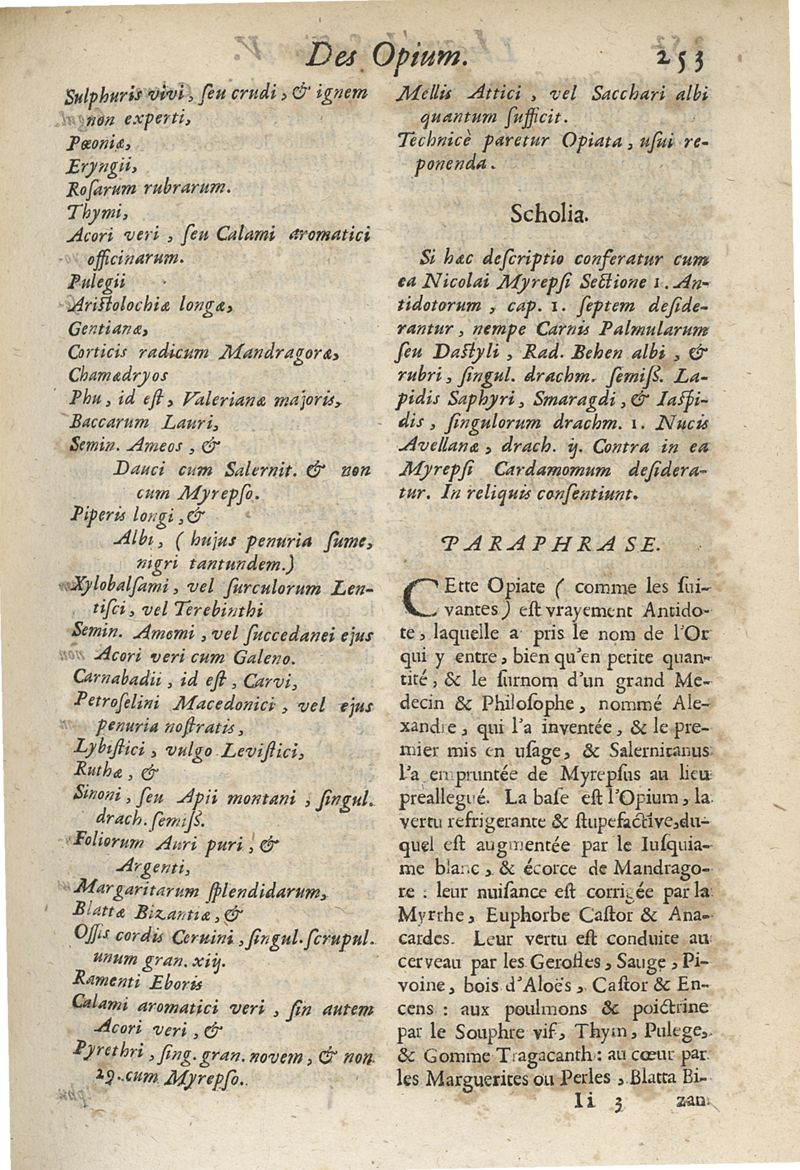 Des Opium. 253
Sulphuris vivi, ſeu crudi, & ignem
non experti,
Pæoniæ,
Eryngii,
Roſarum rubrarum.
Thymi,
Acori veri, ſeu Calami aromatici
officinarum.
Pulegii
Ariſtolochiæ longæ,
Gentianæ,
Corticis radicum Mandragoræ,
Chamædryos
Phu, id eſt, Valerianæ majoris,
Baccarum Lauri,
Semin. Ameos, &
Dauci cum Salernit. & non
cum Myrepſo.
Piperis longi, &
Albi, (hujus penuria ſume,
nigri tantundem.)
Xylobalſami, vel ſurculorum Len-
tiſci, vel Terebinthi
Semin. Amomi, vel ſuccedanei ejus
Acori veri cum Galeno.
Carnabadii, id eſt, Carvi,
Petroſelini Macedonici, vel ejus
penuria noſtratis,
Lybiſtici, vulgo Leviſtici,
Ruthæ, &
Sinoni, ſeu Apii montani, ſingul.
drach. ſemiß.
Foliorum Auri puri, &
Argenti,
Margaritarum ſplendidarum,
Blattæ Bizantiæ, &
Oſſis cordis Ceruini, ſingul. ſcrupul.
unum gran. xiij.
Ramenti Eboris
Calami aromatici veri, ſin autem
Acori veri, &
Pyrethri, ſing. gran. novem, & non
29. cum Myrepſo.
Mellis Attici, vel Sacchari albi
quantum ſufficit.
Technicè paretur Opiata, uſui re-
ponenda.
Scholia.
Si hæc deſcriptio conferatur cum
ea Nicolai Myrepſi Sectione 1. An-
tidotorum, cap. 1. ſeptem deſide-
rantur, nempe Carnis Palmularum
ſeu Dactyli, Rad. Behen albi, &
rubri, ſingul. drachm. ſemiß. La-
pidis Saphyri, Smaragdi, & Iaſpi-
dis, ſingulorum drachm. 1. Nucis
Avellanæ, drach. ij. Contra in ea
Myrepſi Cardamomum deſidera-
tur. In reliquis conſentiunt.
PARAPHRASE.
CEtte Opiate (comme les ſui-
vantes) eſt vrayement Antido-
te, laquelle a pris le nom de l'Or
qui y entre, bien qu'en petite quan-
tité, & le ſurnom d'un grand Me-
decin & Philoſophe, nommé Ale-
xandre, qui l'a inventée, & le pre-
mier mis en uſage, & Salernitanus
l'a empruntée de Myrepſus au lieu
preallegué. La baſe eſt l'Opium, la
vertu refrigerante & ſtupefactive, du-
quel eſt augmentée par le Iuſquia-
me blanc, & écorce de Mandrago-
re : leur nuiſance eſt corrigée par la
Myrrhe, Euphorbe Caſtor & Ana-
cardes. Leur vertu eſt conduite au
cerveau par les Gerofles, Sauge, Pi-
voine, bois d'Aloës, Caſtor & En-
cens : aux poulmons & poictrine
par le Souphre vif, Thym, Pulege,
& Gomme Tragacanth : au cœur par
les Marguerites ou Perles, Blatta Bi-
Ii 3 zan.